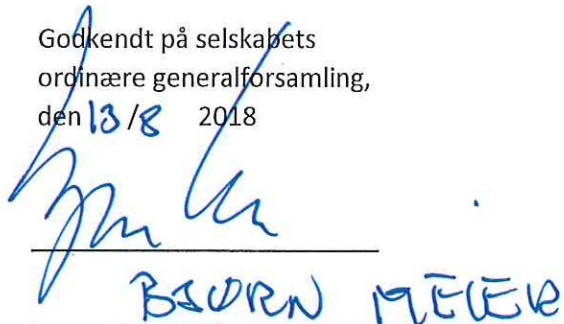 Godkendt på selskabets
ordinære generalforsamling,
den 13/8 2018
BJØRN MEIER